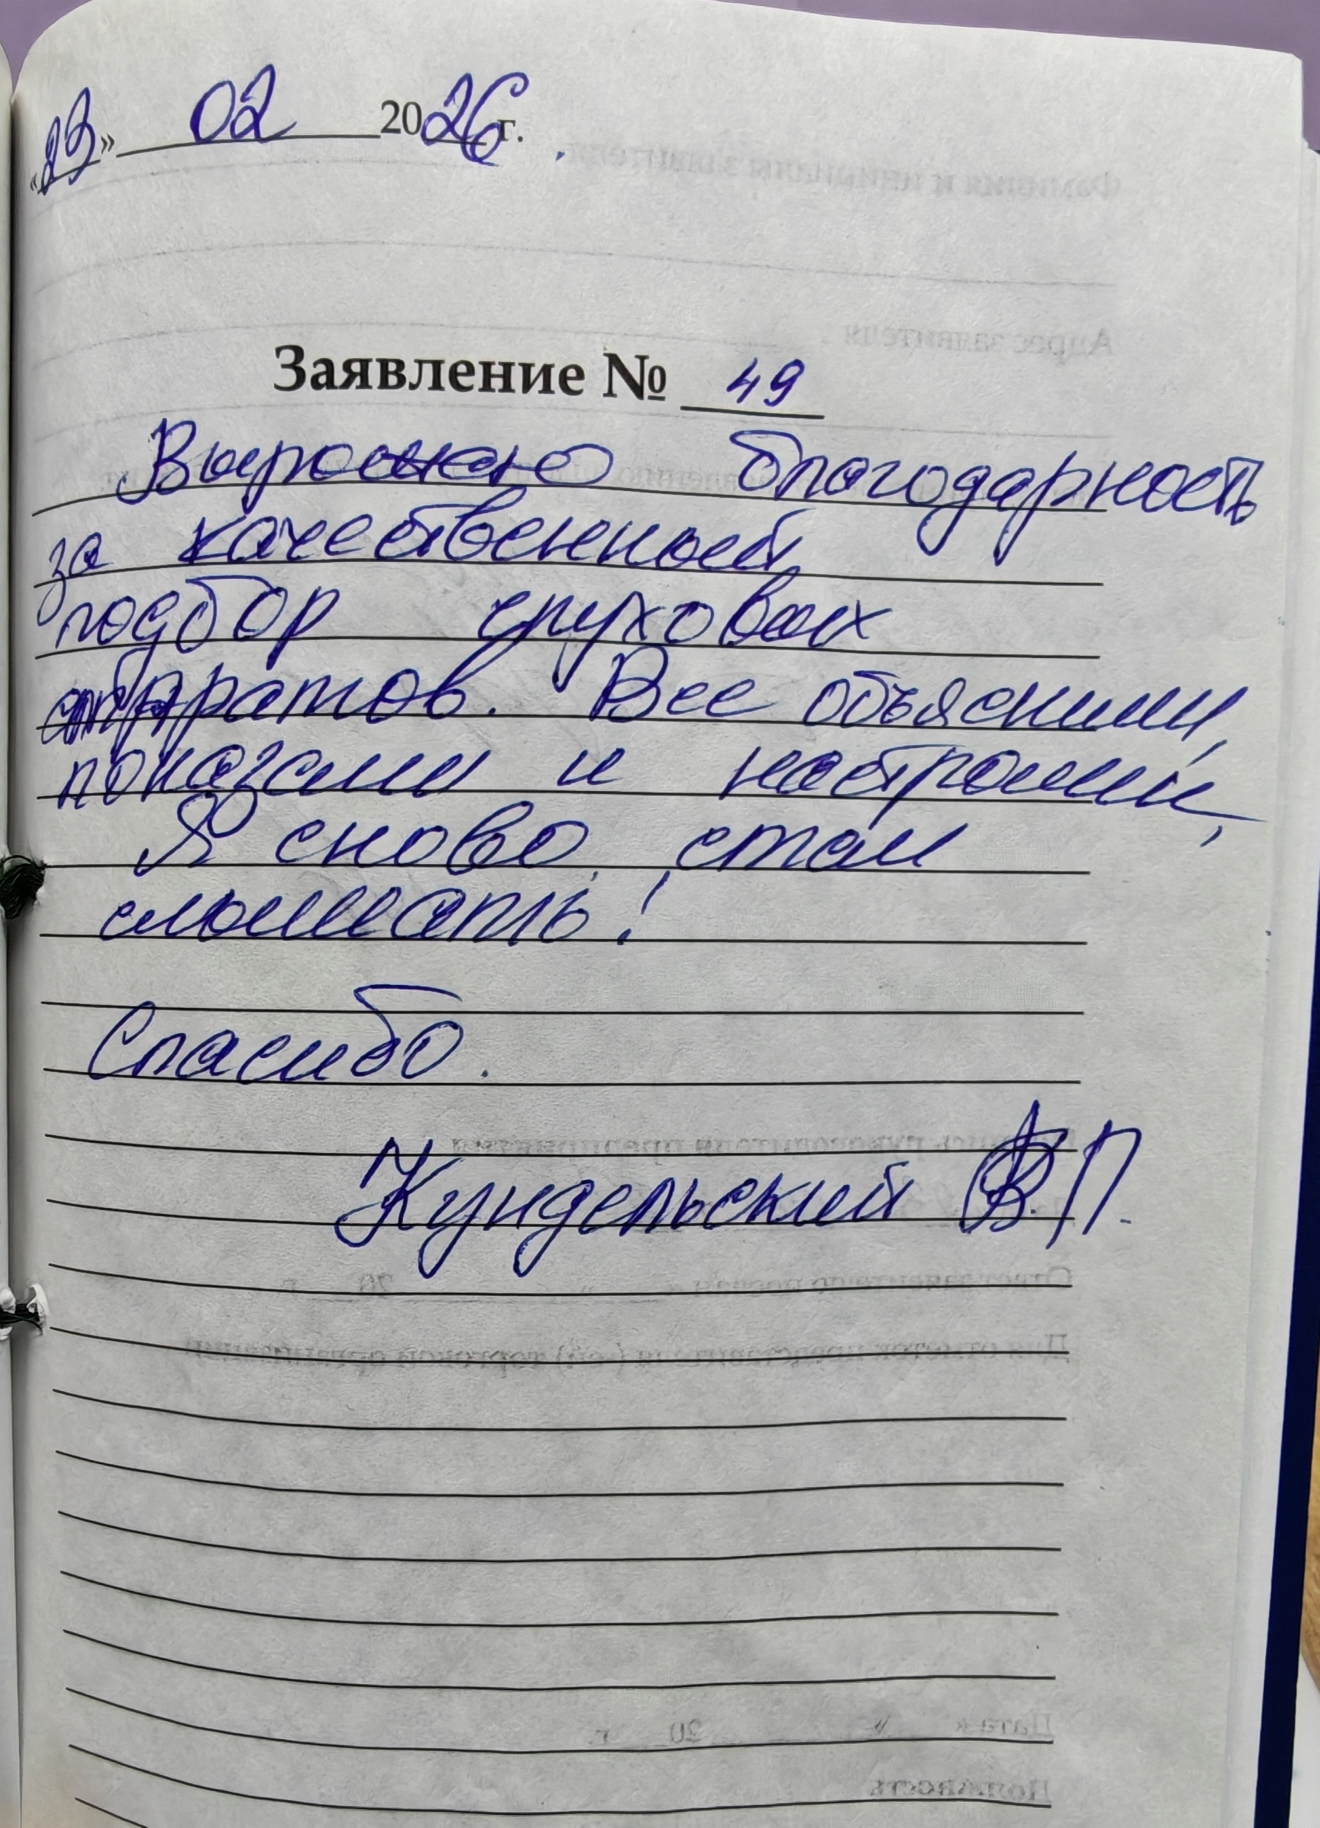 «23» 02 2026 г.
Заявление № 49
Выражаю благодарность
за качественный
подбор слуховых
аппаратов. Все объяснили,
показали и настроили,
Я снова стал
слышать!
Спасибо.
Кундельский В.П.